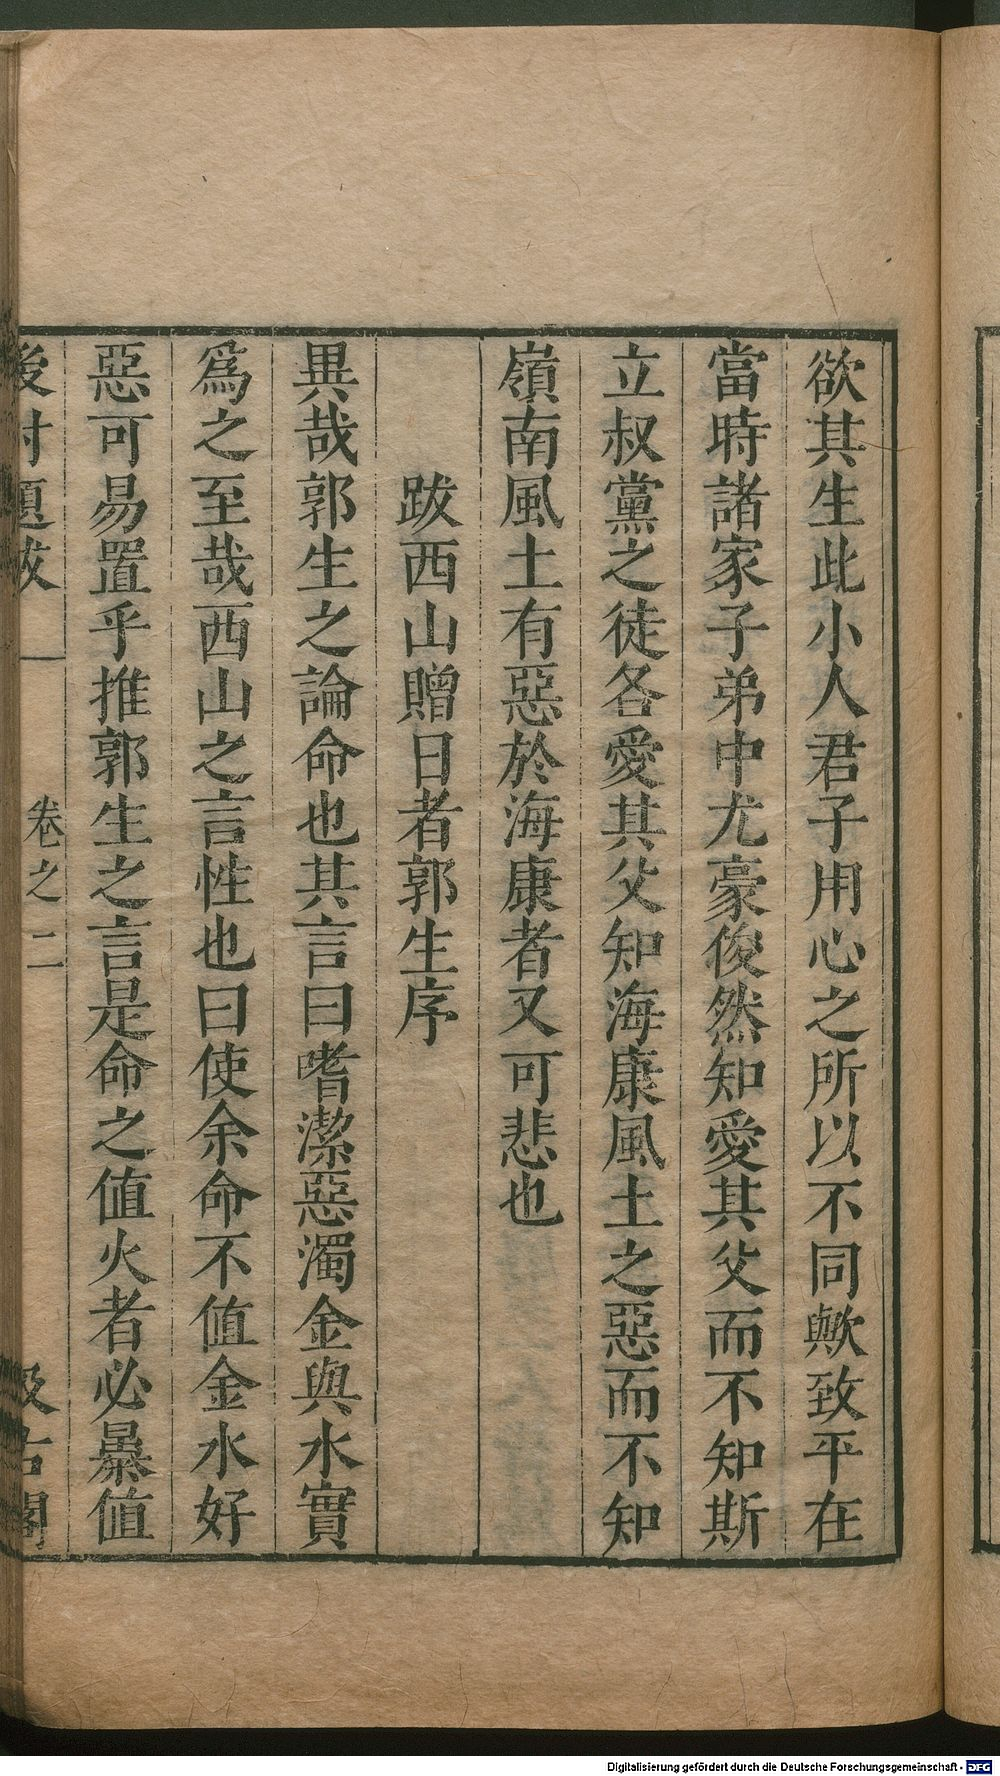 欲其生此小人君子用心之所以不同歟致平在
當時諸家子弟中尤豪俊然知愛其父而不知斯
立叔黨之徒各愛其父知海康風土之惡而不知
嶺南風土有惡於海康者又可悲也
跋西山贈日者郭生序
異哉郭生之論命也其言曰嗜潔惡濁金與水實
爲之至哉西山之言性也曰使余命不値金水好
惡可易置乎推郭生之言是命之値火者必暴値
後村題跋 卷之二 汲古閣
Digitalisierung gefördert durch die Deutsche Forschungsgemeinschaft - DFG